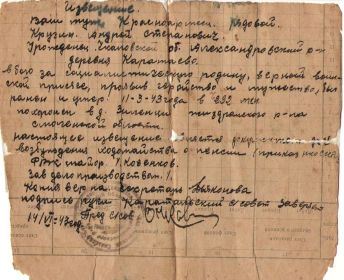 Извещение.
Ваш муж Красноармеец. Рядовой.
Крузин. Андрей Степанович.
Уроженец. об. Александровский р-н
деревня Каратаево.
в бою за социалистическую родину, верной воин-
ской присяге, проявив геройство и мужество, был
ранен и умер. 11-3-43 года в 232 
похоронен в д. Зиленци р-на
Смоленской области.
настоящее извещение является документом для
возбуждения ходатайства о пенсии (приказ
РВК майор. /. Ковенков.
Зав дело производством. /.
Копия верна. Секретарь
подпись руки Каратаевский с/совет заверяет
14/VI-43 год. Пред с/сов.